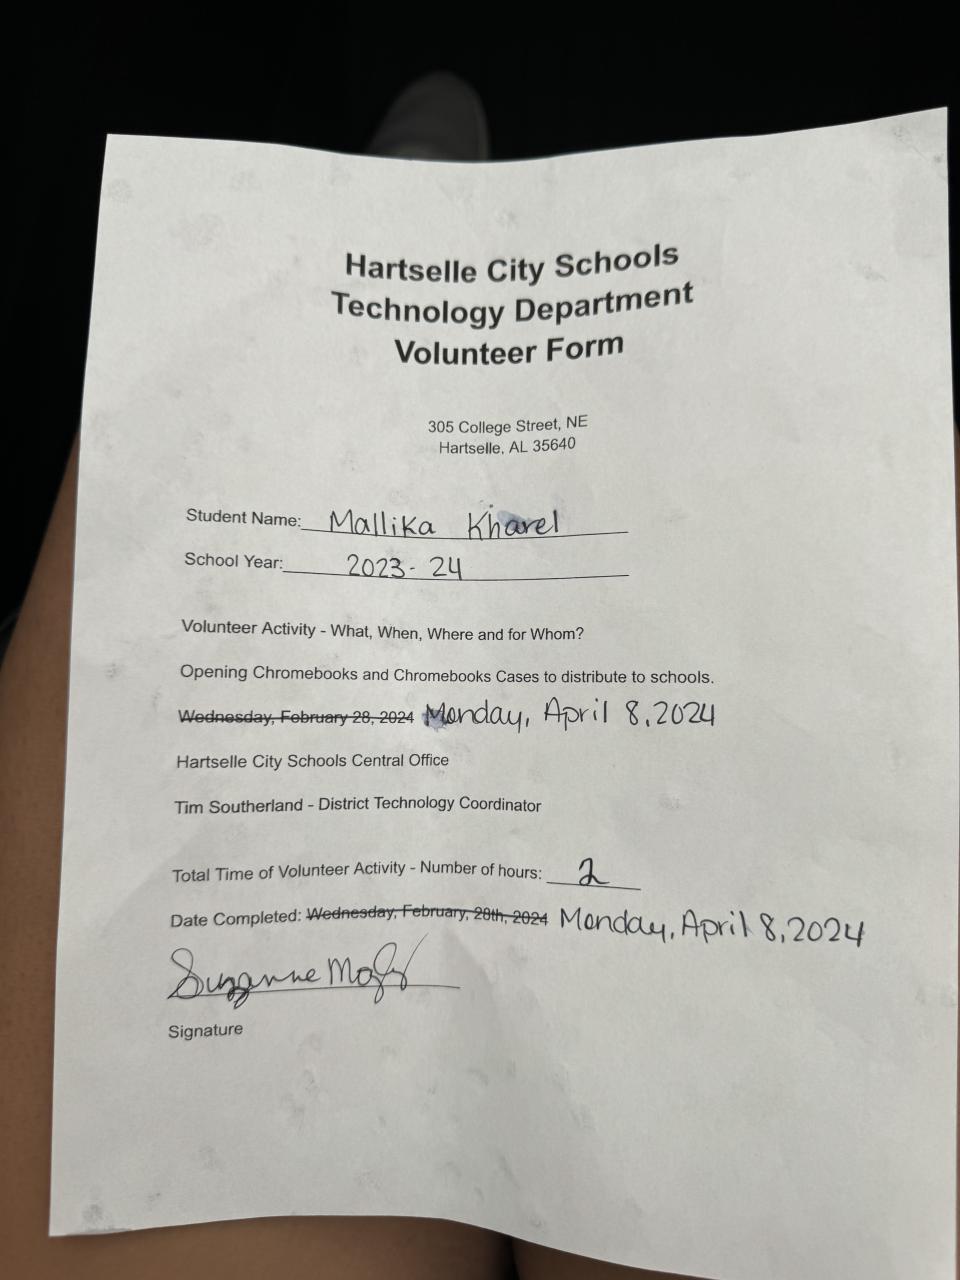 Hartselle City Schools
Technology Department
Volunteer Form
305 College Street, NE
Hartselle, AL 35640
Student Name: Mallika Kharel
School Year: 2023-24
Volunteer Activity - What, When, Where and for Whom?
Opening Chromebooks and Chromebooks Cases to distribute to schools.
Wednesday, February 28, 2024 Monday, April 8, 2024
Hartselle City Schools Central Office
Tim Southerland - District Technology Coordinator
Total Time of Volunteer Activity - Number of hours: 2
Date Completed: Wednesday, February, 28th, 2024 Monday, April 8, 2024
Suzanne
Signature